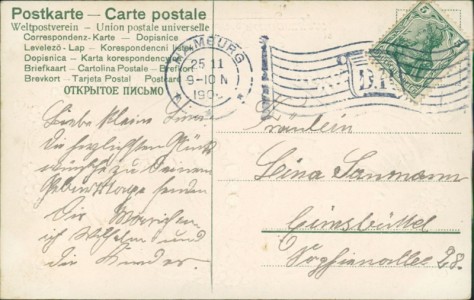 Postkarte – Carte postale
Weltpostverein – Union postale universelle
Correspondenz-Karte – Dopisnice
Levelező-Lap – Korespondencni listek
Dopisnica – Karta korespondencyjna
Briefkaart – Cartolina Postale – Brefkort
Brevkort – Tarjeta Postal Postcard
ОТКРЫТОЕ ПИСЬМО
HAMBURG
25 11
9-10 N
190
D.R.
5
Liebe kleine
Die herzlichsten Glück
wünsche zu Deinem
Geburtstage senden
Dir
ich Wilhelm und
die Kinder.
Fräulein
Lina Sanmann
Eimsbüttel
Sophienallee 28.